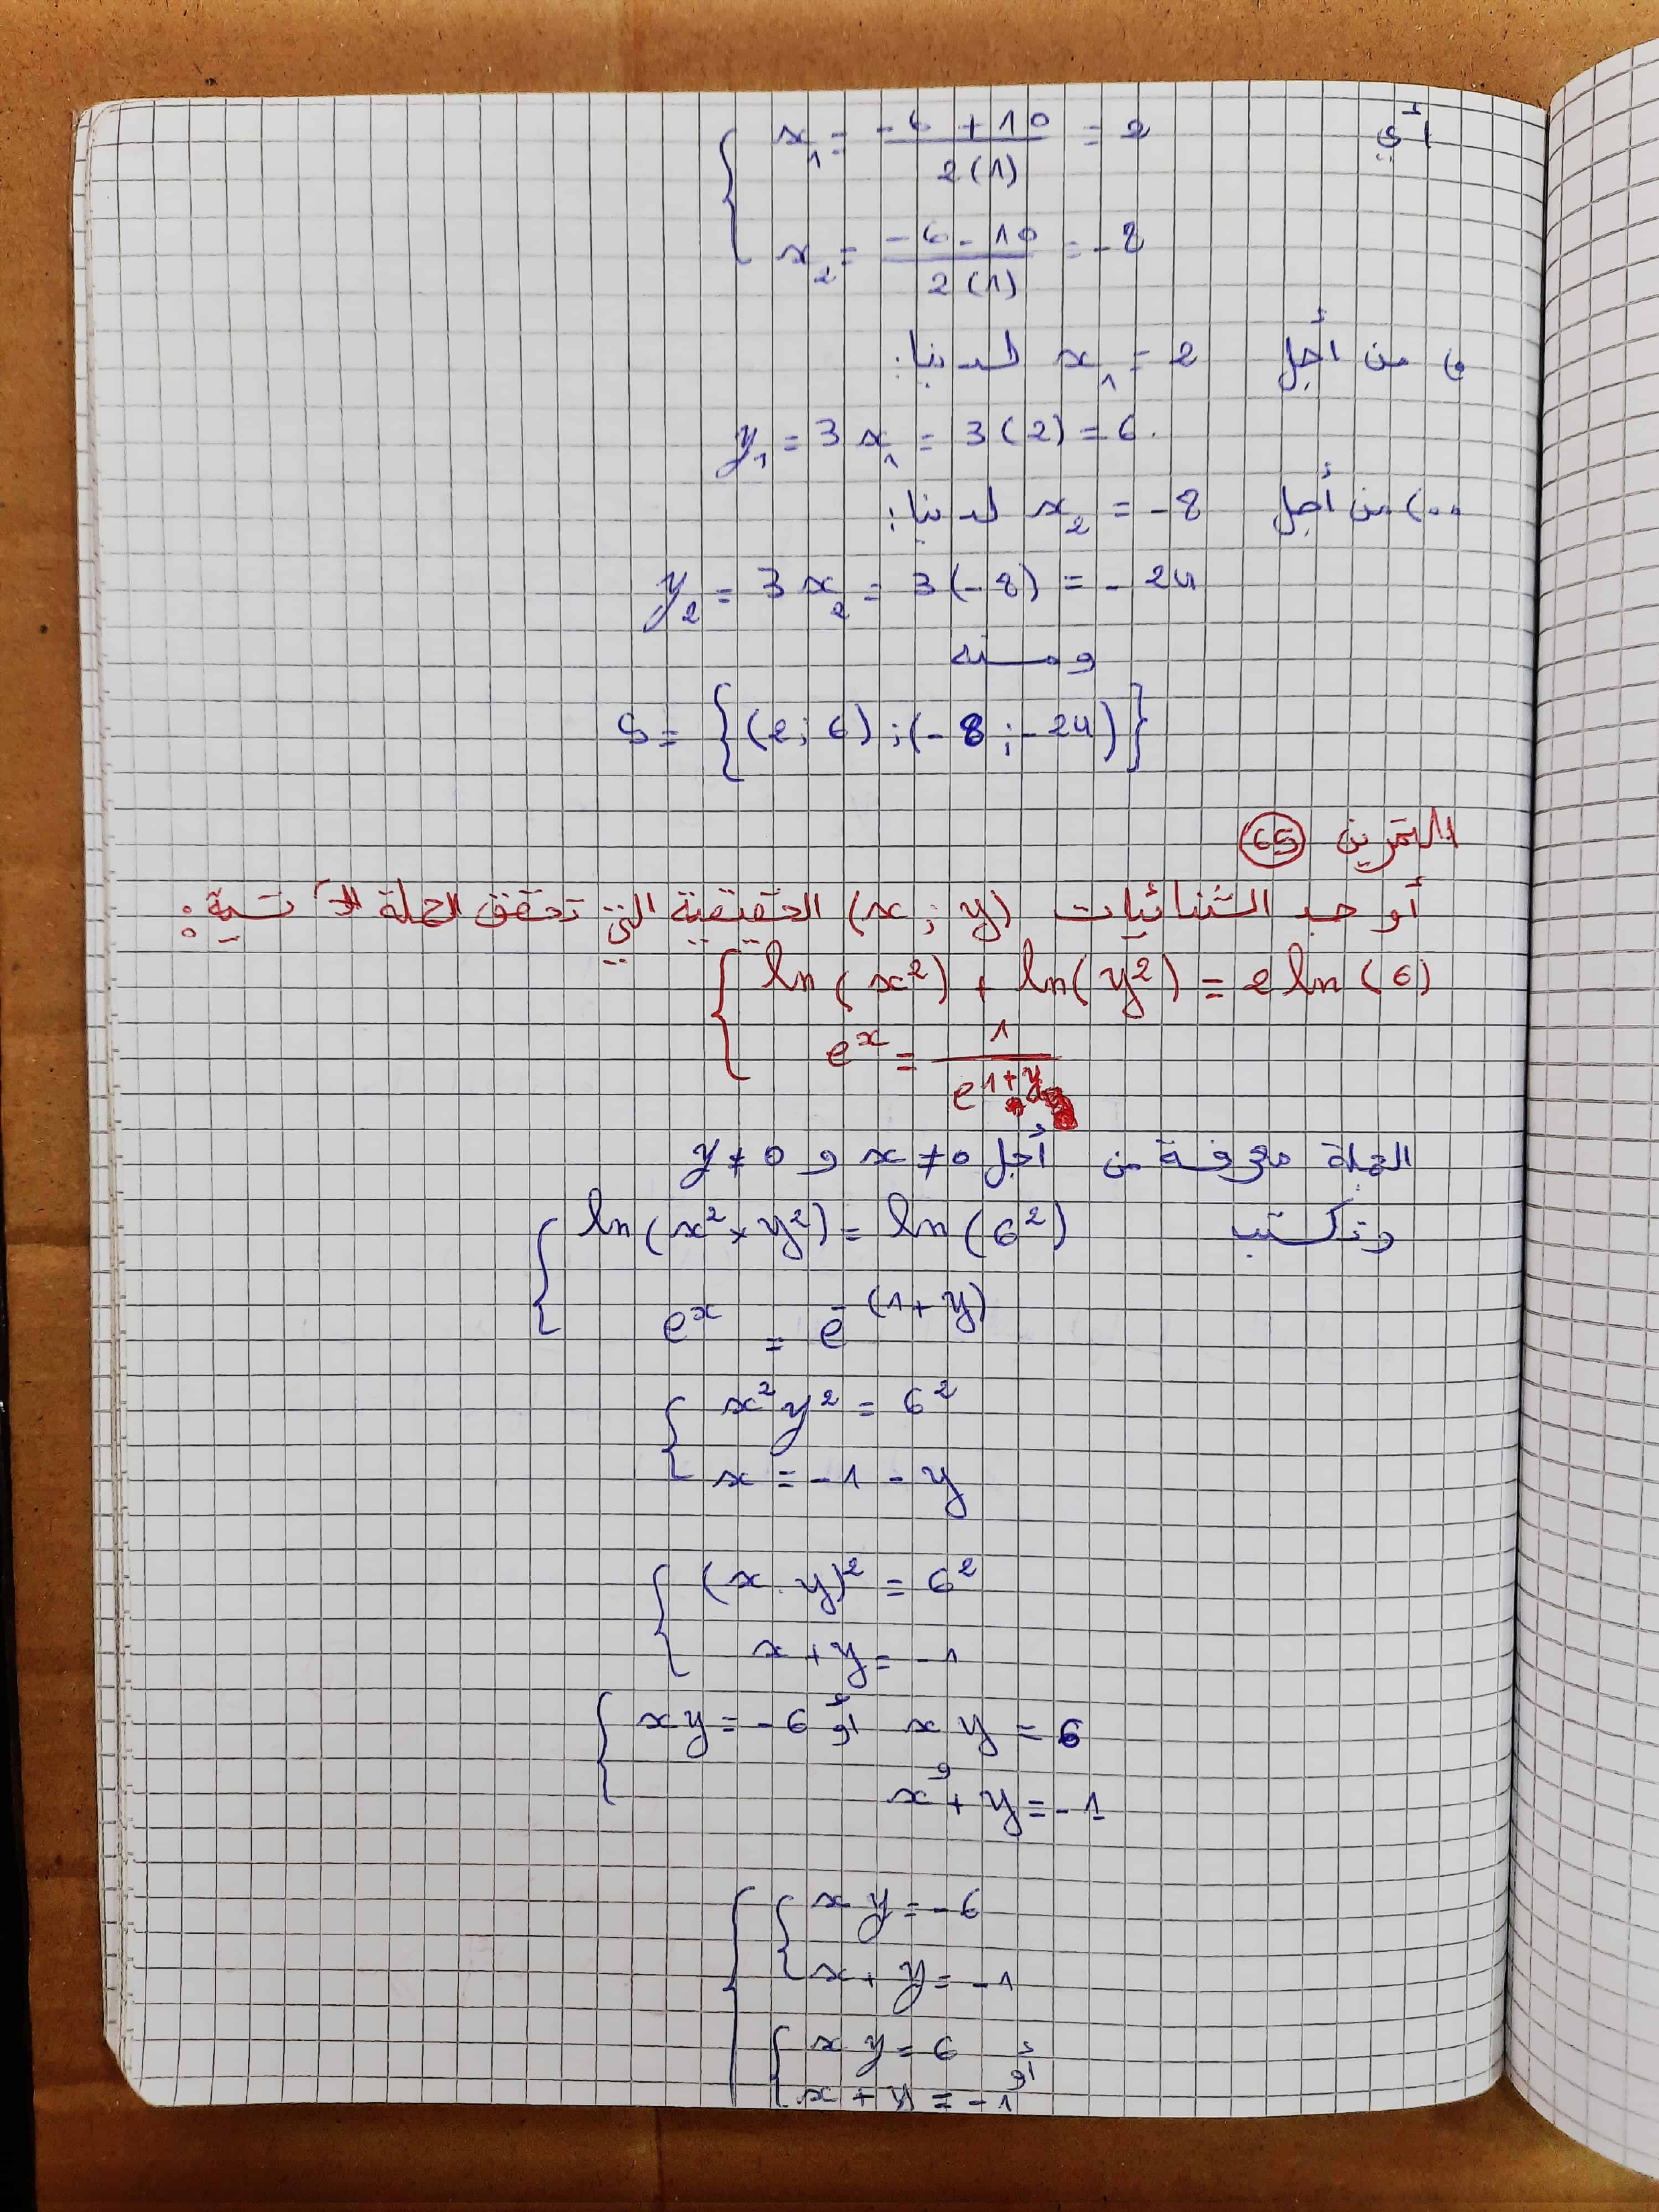 أي x₁ = (-6 + 10)/(2(1)) = 2
x₂ = (-6 - 10)/(2(1)) = -8
من أجل x₁ = 2 لدينا:
y₁ = 3x₁ = 3(2) = 6.
من أجل x₂ = -8 لدينا:
y₂ = 3x₂ = 3(-8) = -24
ومنه
S = {(2; 6) ; (-8 ; -24)}
التمرين 65
أوجد الثنائيات (x ; y) الحقيقية التي تحقق الجملة الآتية:
ln(x²) + ln(y²) = 2 ln(6)
eˣ = 1/e^(1+y)
الجملة معرفة من أجل x ≠ 0 و y ≠ 0
وتكتب ln(x² × y²) = ln(6²)
eˣ = e^-(1+y)
x² y² = 6²
x = -1 - y
(x . y)² = 6²
x + y = -1
xy = -6 أو xy = 6
و
x + y = -1
xy = -6
x + y = -1
أو
xy = 6
x + y = -1